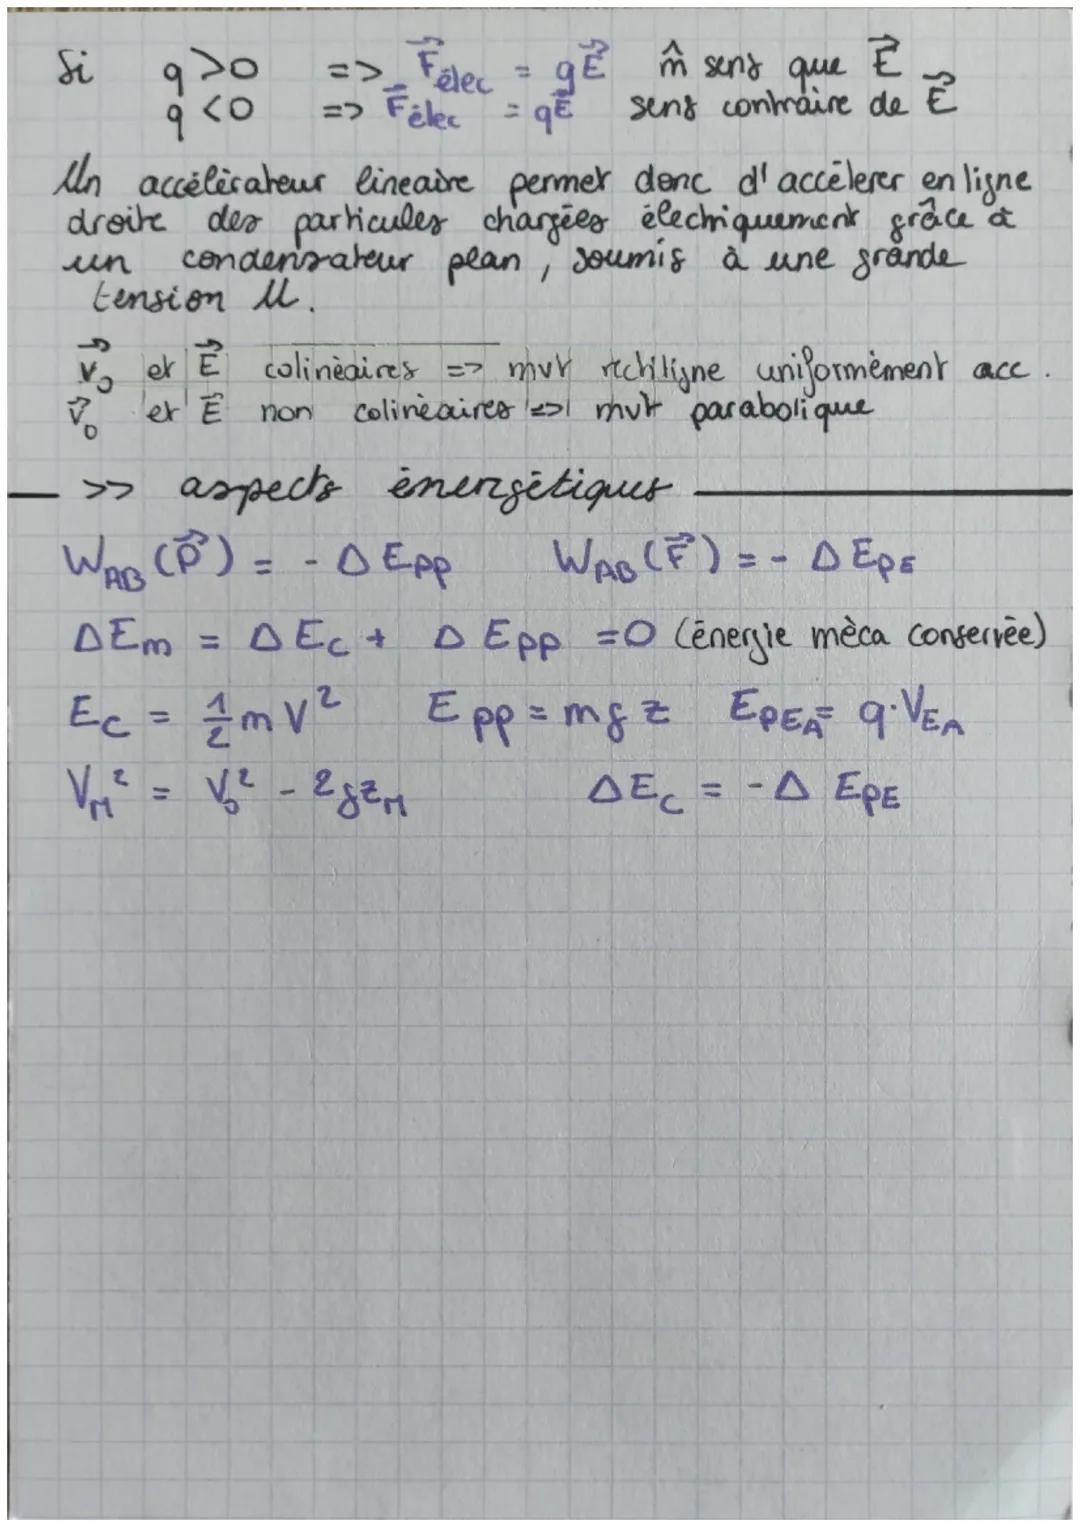 Si q>0 => F⃗élec = qE⃗ m̂ sens que E⃗
q<0 => F⃗élec = qE⃗ sens contraire de E⃗
Un accélérateur lineaire permet donc d'accélerer en ligne
droite des particules chargées électriquement grâce à
un condensateur plan, soumis à une grande
tension U.
V⃗₀ et E⃗ colinéaires => mvt rectiligne uniformément acc.
V⃗₀ et E⃗ non colinéaires => mvt parabolique
>> aspects énergétiques
W_AB (P⃗) = - Δ Epp W_AB (F⃗) = - Δ EPE
ΔEm = ΔEc + Δ Epp = 0 (énergie méca conservée)
Ec = ½ m V² Epp = mgz EPE_A = q·V_EA
V_M² = V₀² - 2gz_M ΔEc = -Δ EPE